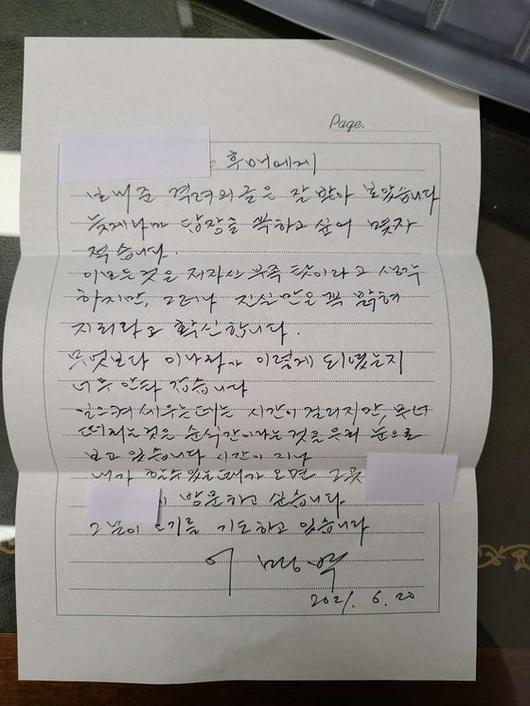 Page.
후배에게
보내준 격려의 글은 잘 받아 보았습니다
늦게나마 답장을 꼭 하고 싶어 몇자
적습니다.
이 모든것은 저 자신 부족 탓이라고 생각
하지만, 그러나 진실만은 꼭 밝혀
지리라고 확신합니다.
무엇보다 이나라가 이렇게 되었는지
너무 안타 깝습니다
일으켜 세우는데는 시간이 걸리지만, 무너
떠리는것은 순식간이라는 것을 우리 눈으로
보고 있습니다 시간이 지나
내가 할수있는때가 오면 그곳
방문하고 싶습니다
그날이 오기를 기도하고 있습니다
이 명 박
2021. 6. 20